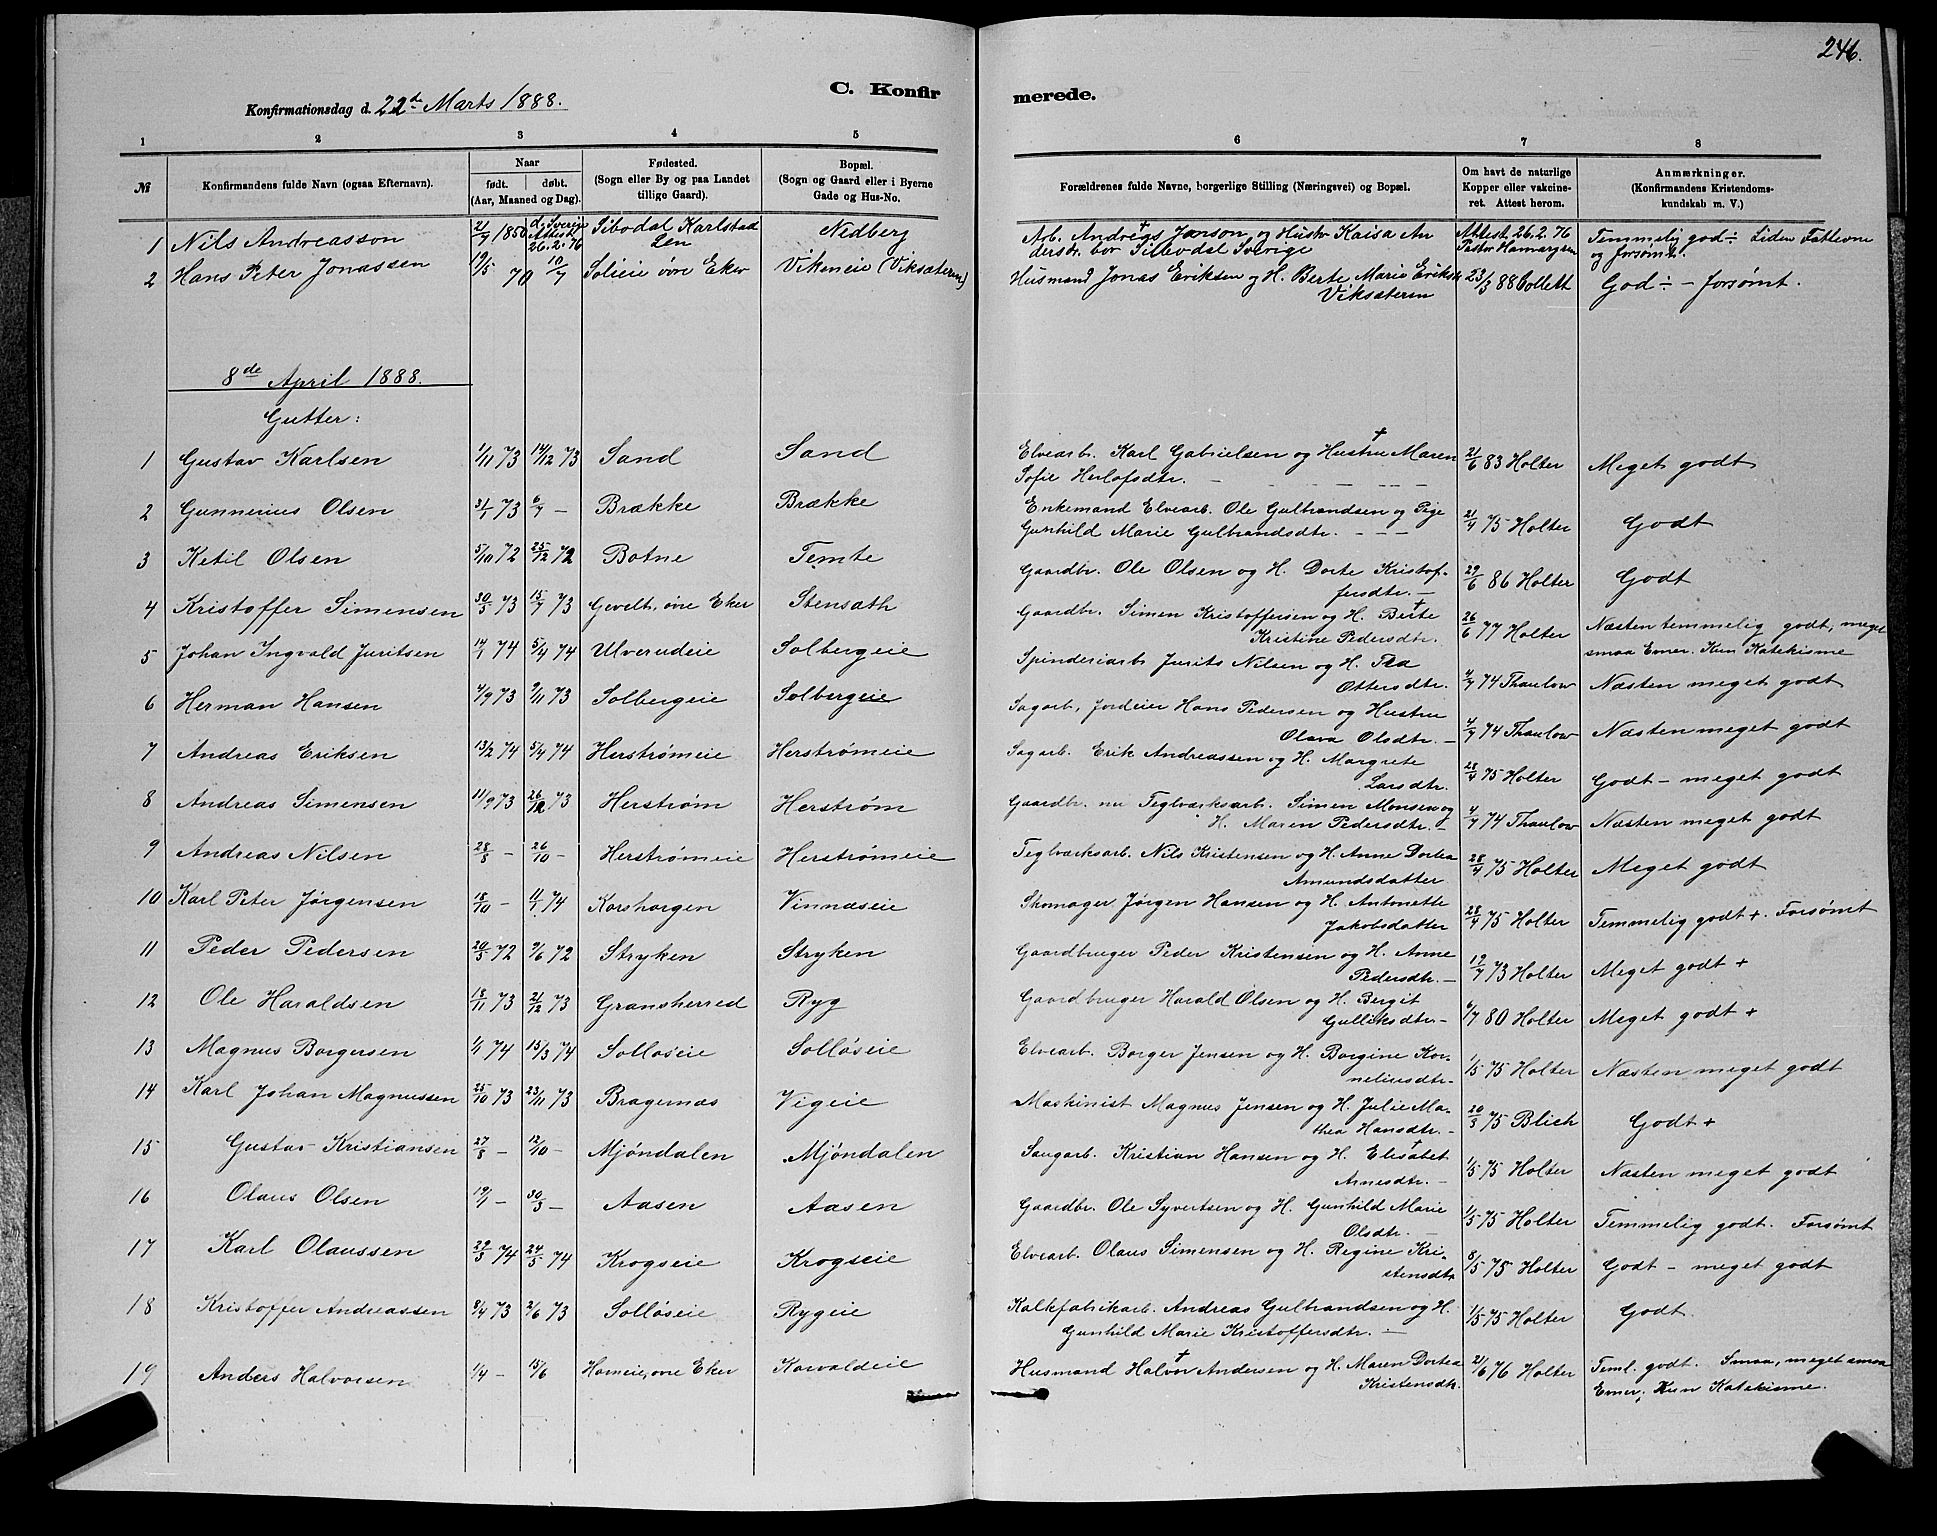 246.
Konfirmationsdag d. 22de Marts 1888.
C. Konfirmerede.
1 2 3 4 5 6 7 8
№ Konfirmandens fulde Navn (ogsaa Efternavn). Naar født. døbt. (Aar, Maaned og Dag). Fødested. (Sogn eller By og paa Landet tillige Gaard). Bopæl. (Sogn og Gaard eller i Byerne Gade og Hus-No. Forældrenes fulde Navne, borgerlige Stilling (Næringsvei) og Bopæl. Om havt de naturlige Kopper eller vakcineret. Attest herom. Anmærkninger. (Konfirmandens Kristendomskundskab m. V.)
1 Nils Andreasson 2/7 1850 d. i Sverige Attest 26.2.76 Silbodal Karlstad Len Nedberg Arb. Andreas† Jonson og Hustr Kaisa Andersdr. bor Silbodal Sverige Attest 26.2.76 Pastor Temmelig god ÷ Liden Fatteevne og forsømt.
2 Hans Peter Jonassen 19/5 70 10/7 Solieie øvre Eker Vikeneie (Viksæteren) Husmand Jonas Eriksen og H. Berte Marie Eriksdr Viksæteren 23/3 88 Collett God ÷ - forsømt.
8de April 1888.
Gutter:
1 Gustav Karlsen 1/11 73 14/12 73 Sand Sand Elvearb. Karl Gabrielsen og Hustru† Maren Sofie Herlofsdtr. 21/6 83 Holter Meget godt
2 Gunnerius Olsen 31/1 73 6/4 — Brække Brække Enkemand Elvearb. Ole Gulbrandsen og Pige Gunhild Marie Gulbrandsdtr. - - - 21/4 75 Holter Godt
3 Ketil Olsen 5/10 72 25/12 72 Botne Temte Gaardbr. Ole Olsen og H. Dorte Kristoffersdtr. — 29/6 86 Holter Godt
4 Kristoffer Simensen 30/5 73 15/7 73 Gevelt, øvre Eker Stensæth Gaardbr. Simen Kristoffersen og H. Berte† Kristine Pedersdtr. 26/6 77 Holter Næsten temmelig godt, meget smaa Evner. Kun Katekisme
5 Johan Ingvald Juritsen 14/1 74 5/4 74 Ulverudeie Solbergeie Spinderiarb. Jurits Nilsen og H. Pea Ottersdtr. 4/7 74 Thaulow Næsten meget godt
6 Herman Hansen 4/9 73 9/11 73 Solbergeie Solbergeie Sagarb., Jordeier Hans Pedersen og Hustru Olava Olsdtr. — 4/7 74 Thaulow Næsten meget godt
7 Andreas Eriksen 13/2 74 5/4 74 Herstrømeie Herstrømeie Sagarb. Erik Andreassen og H. Margrete Larsdtr. 28/4 75 Holter Godt - meget godt
8 Andreas Simensen 11/9 73 26/12 73 Herstrøm Herstrøm Gaardbr. nu Teglværksarb. Simen Monsen og H. Maren Pedersdtr. — 4/7 74 Thaulow Næsten meget godt
9 Andreas Nilsen 28/8 — 26/10 — Herstrømeie Herstrømeie Teglværksarb. Nils Kristensen og H. Anne Dortea Amundsdatter 28/4 75 Holter Meget godt
10 Karl Peter Jørgensen 18/10 — 11/1 74 Korshaugen Vinnæseie Skomager Jørgen Hansen og H. Antonette Jakobsdatter 28/4 75 Holter Temmelig godt +. Forsømt
11 Peder Pedersen 20/5 72 9/6 72 Stryken Stryken Gaardbruger Peder Kristensen og H. Anne Pedersdtr. — 12/7 73 Holter Meget godt +
12 Ole Haraldsen 18/11 73 21/12 73 Gransherred Ryg Gaardbruger Harald Olsen og H. Bergit Gulliksdtr — 6/7 80 Holter Meget godt +
13 Magnus Borgersen 1/1 74 15/3 74 Solløseie Solløseie Elvearb. Borger Jensen og H. Borgine Korneliusdtr — 1/5 75 Holter Næsten meget godt
14 Karl Johan Magnussen 25/10 73 23/11 73 Bragernæs Vigeie Maskinist Magnus Jensen og H. Julie Mathea Hansdtr. — 20/3 75 Blich Godt +
15 Gustav Kristiansen 27/8 — 12/10 — Mjøndalen Mjøndalen Saugarb. Kristian Hansen og H. Elisabet† Arnesdtr. — 1/5 75 Holter Næsten meget godt
16 Olaus Olsen 19/1 — 30/3 — Aasen Aasen Gaardbr. Ole Syvertsen og H. Gunhild Marie Olsdtr. — 1/5 75 Holter Temmelig godt. Forsømt
17 Karl Olaussen 29/3 74 24/5 74 Krogseie Krogseie Elvearb. Olaus Simensen og H. Regine Kristensdtr 8/5 75 Holter Godt - meget godt
18 Kristoffer Andreassen 8/4 73 2/6 73 Solløseie Rygeie Kalkfabrikarb. Andreas Gulbrandsen og H. Gunhild Marie Kristoffersdtr. — 1/5 75 Holter Godt.
19 Anders Halvorsen 1/4 — 15/6 Hameie, øvre Eker Korvaldeie Husmand Halvor† Andersen og H. Maren Dortea Kristensdtr. 21/6 76 Holter Teml. godt. Smaa, meget smaa Evner; Kun Katekisme.